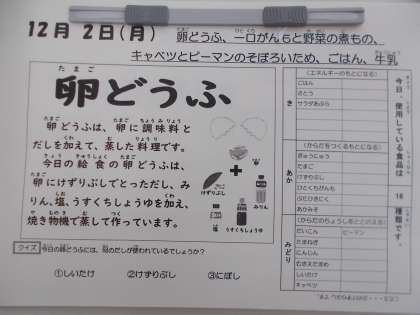 12月 2日(月) 卵どうふ、一口がんもと野菜の煮もの、
キャベツとピーマンのそぼろいため、ごはん、牛乳
卵どうふ
卵どうふは、卵に調味料と
だしを加えて、蒸した料理です。
今日の給食の卵どうふは、
卵にけずりぶしでとっただし、み
りん、塩、うすくちしょうゆを加え、
焼き物機で蒸して作っています。
塩
みりん
うすくちしょうゆ
クイズ 今日の卵どうふには、何のだしが使われているでしょうか?
①しいたけ ②けずりぶし ③にぼし
今日、使用している食品は 16 種類です。
き
(エネルギーのもとになる)
ごはん
さとう
サラダあぶら
あか
(からだをつくるもとになる)
ぎゅうにゅう
たまご
けずりぶし
ひとくちがんも
ぶたひきにく
あかみそ
みどり
(からだのちょうしをととのえる)
だいこん ピーマン
たまねぎ
にんじん
むきえだまめ
しいたけ
キャベツ